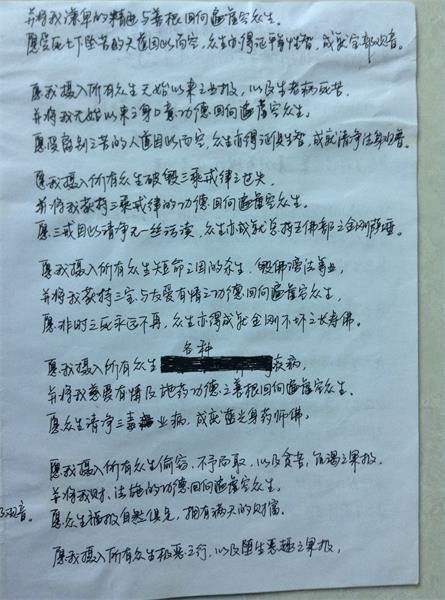 并将我深厚的精进与善根回向遍虚空众生。
愿受死亡下坠苦的天道因此而空，众生亦得证平等性智，成就宝部观音。
愿我摄入所有众生无始以来之业报，以及生老病死苦，
并将我无始以来之身口意功德回向遍虚空众生。
愿受离别之苦的人道因此而空，众生亦得证俱生智，成就清净法身观音。
愿我摄入所有众生破毁三乘戒律之过失，
并将我护持三乘戒律的功德回向遍虚空众生。
愿三戒因此清净无一丝污渎，众生亦成就总持五佛部之金刚萨埵。
愿我摄入所有众生短命之因的杀生，毁佛谤法等业，
并将我护持三宝与友爱有情之功德回向遍虚空众生，
愿非时之死永远不再，众生亦得成就金刚不坏之长寿佛。
各种
愿我摄入所有众生疾病，
并将我慈爱有情及施药功德之善根回向遍虚空众生。
愿众生清净三毒业病，成就蓝光身药师佛。
愿我摄入所有众生偷窃、不予而取，以及贫苦，饥渴之果报，
并将我财、法施的功德回向遍虚空众生。
观音。
愿众生福报自然俱足，拥有满天的财富。
愿我摄入所有众生极恶之行，以及堕生恶趣之果报，